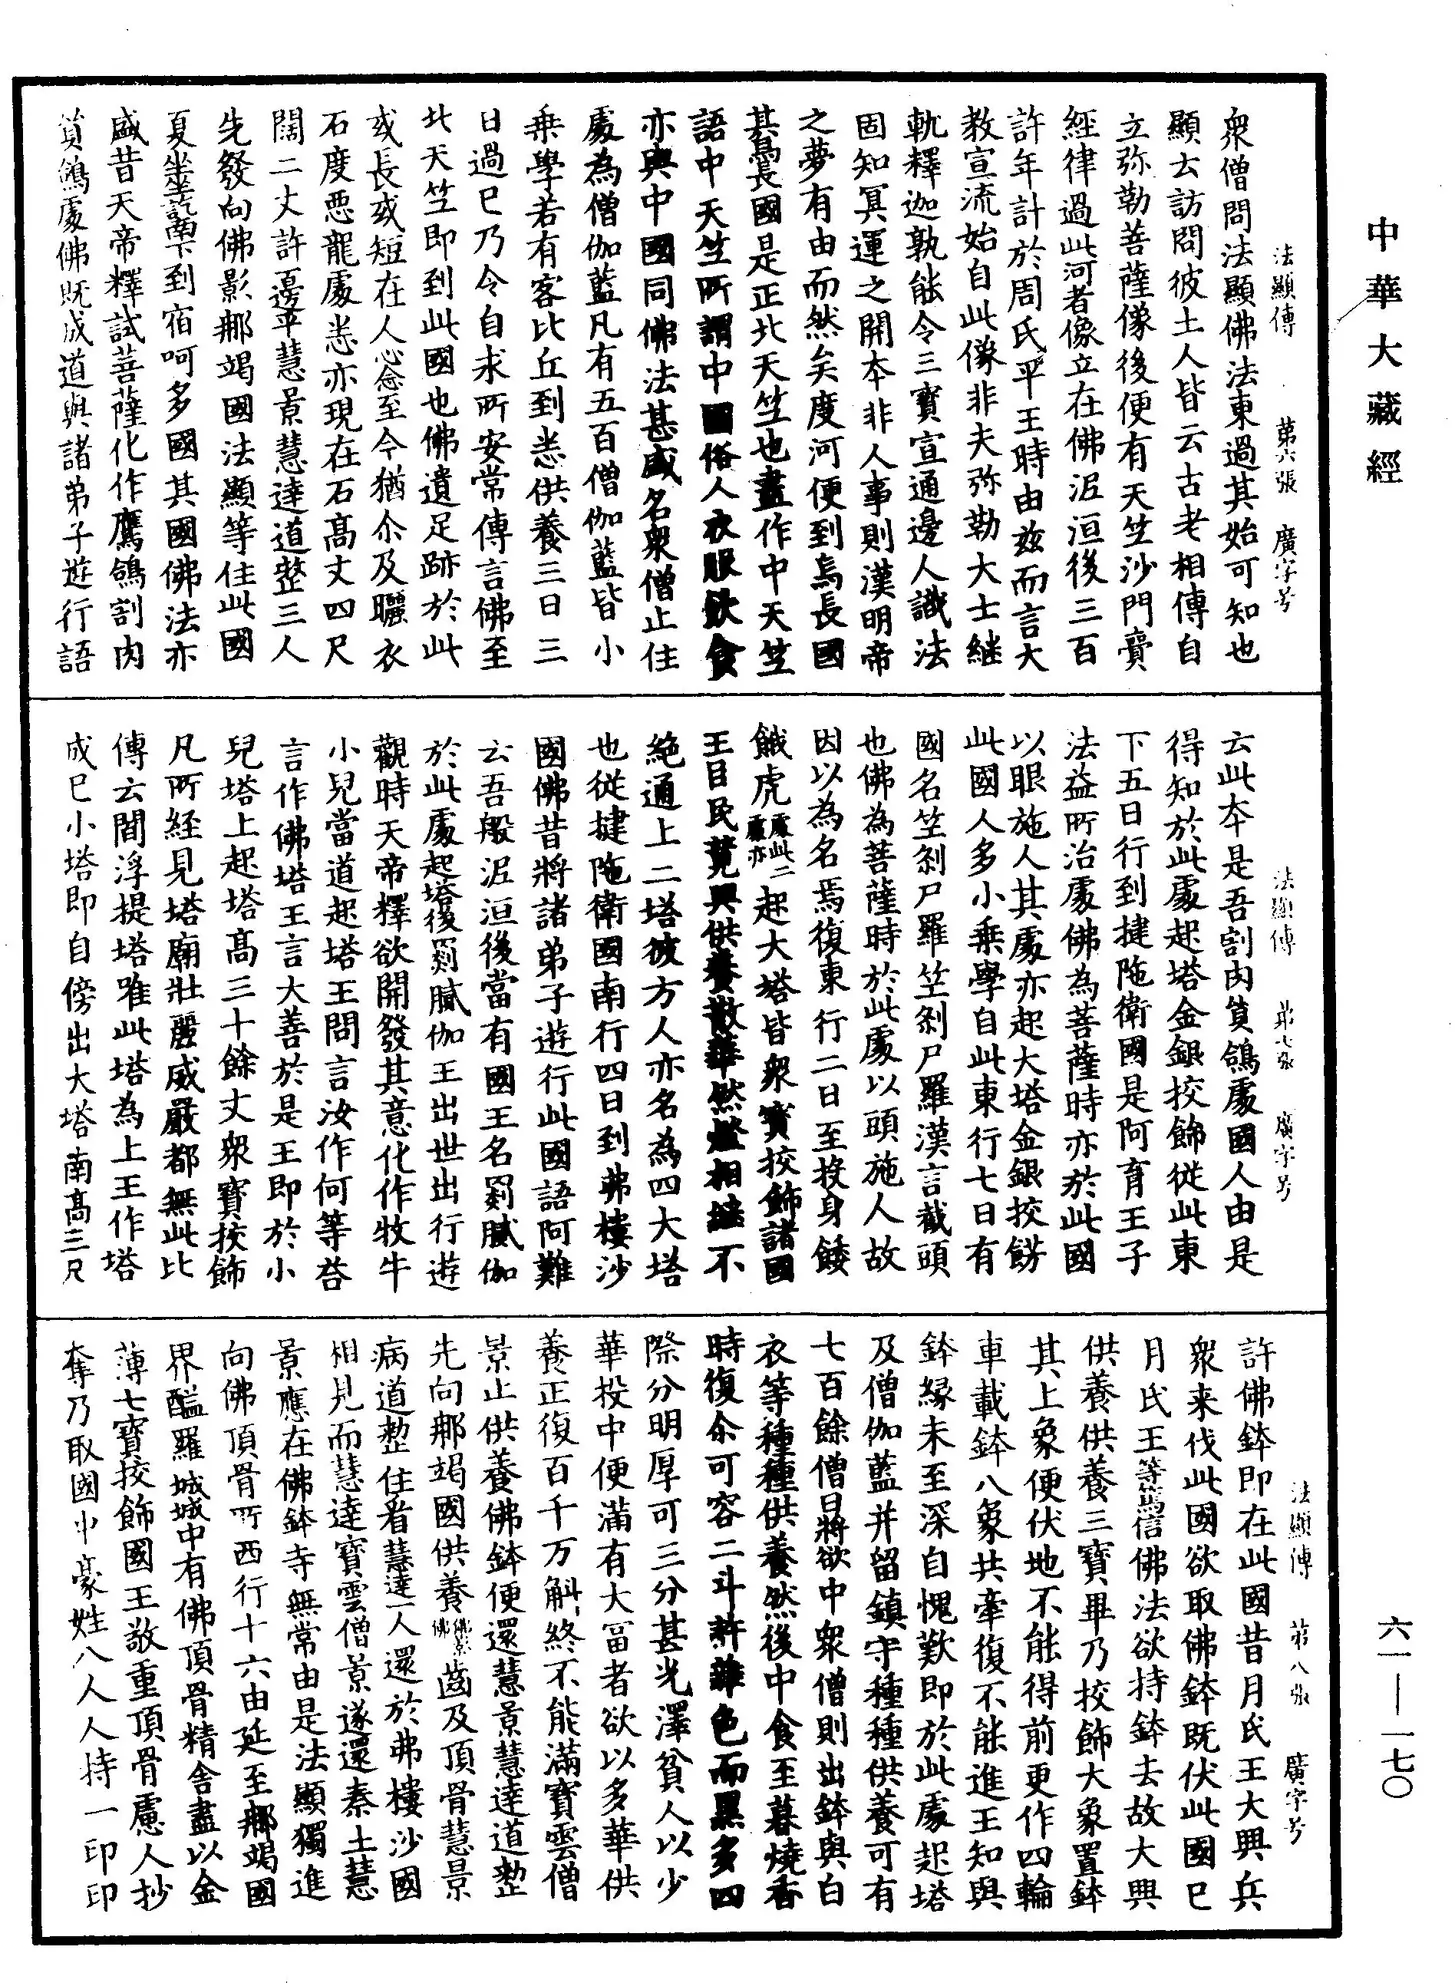 中華大藏經
法顯傳 第六張 廣字号
衆僧問法顯佛法東過其始可知也
顯去訪問彼土人皆云古老相傳自
立弥勒菩薩像後便有天竺沙門賷
經律過此河者像立在佛泥洹後三百
許年計於周氏平王時由兹而言大
教宣流始自此像非夫弥勒大士継
軌釋迦孰能令三寳宣通邊人識法
固知冥運之開夲非人事則漢明帝
之夢有由而然矣度河便到烏長國
其烏長國是正北天竺也盡作中天竺
語中天竺所謂中國俗人衣服飲食
亦與中國同佛法甚盛名衆僧止住
處為僧伽藍凡有五百僧伽藍皆小
乗學若有客比丘到悉供養三日三
日過已乃令自求所安常傳言佛至
北天竺即到此國也佛遺足跡於此
或長或短在人心念至今猶尒及曬衣
石度惡龍處悉亦現在石髙丈四尺
闊二丈許一邊平慧景慧達道整三人
先發向佛影那竭國法顯等住此國
夏坐坐訖南下到宿呵多國其國佛法亦
盛昔天帝釋試菩薩化作鷹鴿割肉
貿鴿處佛既成道與諸弟子遊行語
法顯傳 第七張 廣字号
云此夲是吾割肉貿鴿處國人由是
得知於此處起塔金銀挍飾從此東
下五日行到揵陁衛國是阿育王子
法益所治處佛為菩薩時亦於此國
以眼施人其處亦起大塔金銀挍餝
此國人多小乗學自此東行七日有
國名竺刹尸羅竺刹尸羅漢言截頭
也佛為菩薩時於此處以頭施人故
因以為名焉復東行二日至投身餧
餓虎處此二處亦起大塔皆衆寳挍飾諸國
王臣民競興供養散華然燈相継不
絶通上二塔彼方人亦名為四大塔
也從揵陁衛國南行四日到弗樓沙
國佛昔將諸弟子遊行此國語阿難
云吾般泥洹後當有國王名罽膩伽
於此處起塔後罽膩伽王出世出行遊
觀時天帝釋欲開發其意化作牧牛
小兒當道起塔王問言汝作何等荅
言作佛塔王言大善於是王即於小
兒塔上起塔髙三十餘丈衆寳挍飾
凡所經見塔廟壯麗威嚴都無此比
傳云閻浮提塔唯此塔為上王作塔
成已小塔即自傍出大塔南髙三尺
法顯傳 第八張 廣字号
許佛鉢即在此國昔月氏王大興兵
衆来伐此國欲取佛鉢既伏此國已
月氏王等篤信佛法欲持鉢去故大興
供養供養三寳畢乃挍飾大象置鉢
其上象便伏地不能得前更作四輪
車載鉢八象共牽復不能進王知與
鉢縁未至深自愧歎即於此處起塔
及僧伽藍并留鎮守種種供養可有
七百餘僧日將欲中衆僧則出鉢與白
衣等種種供養然後中食至暮燒香
時復尒可容二斗許雜色而黒多四
際分明厚可三分甚光澤貧人以少
華投中便滿有大冨者欲以多華供
養正復百千万斛終不能滿寳雲僧
景止供養佛鉢便還慧景慧達道整
先向那竭國供養佛影佛齒及頂骨慧景
病道整住看慧達一人還於弗樓沙國
相見而慧達寳雲僧景遂還秦土慧
景應在佛鉢寺無常由是法顯獨進
向佛頂骨所西行十六由延至那竭國
界醯羅城城中有佛頂骨精舎盡以金
薄七寳挍飾國王敬重頂骨慮人抄
奪乃取國中豪姓八人人持一印印
六一——一七〇